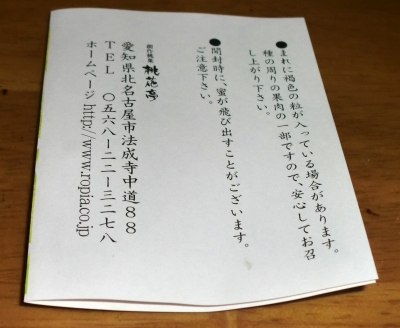 ●まれに褐色の粒が入っている場合があります。
種の周りの果肉の一部ですので、安心してお召
し上がり下さい。
●開封時に、蜜が飛び出すことがございます。
ご注意下さい。
創作執菓 桃花亭
愛知県北名古屋市法成寺中道88
TEL 〇五六八ー二二ー三二七八
ホームページ http://www.ropia.co.jp